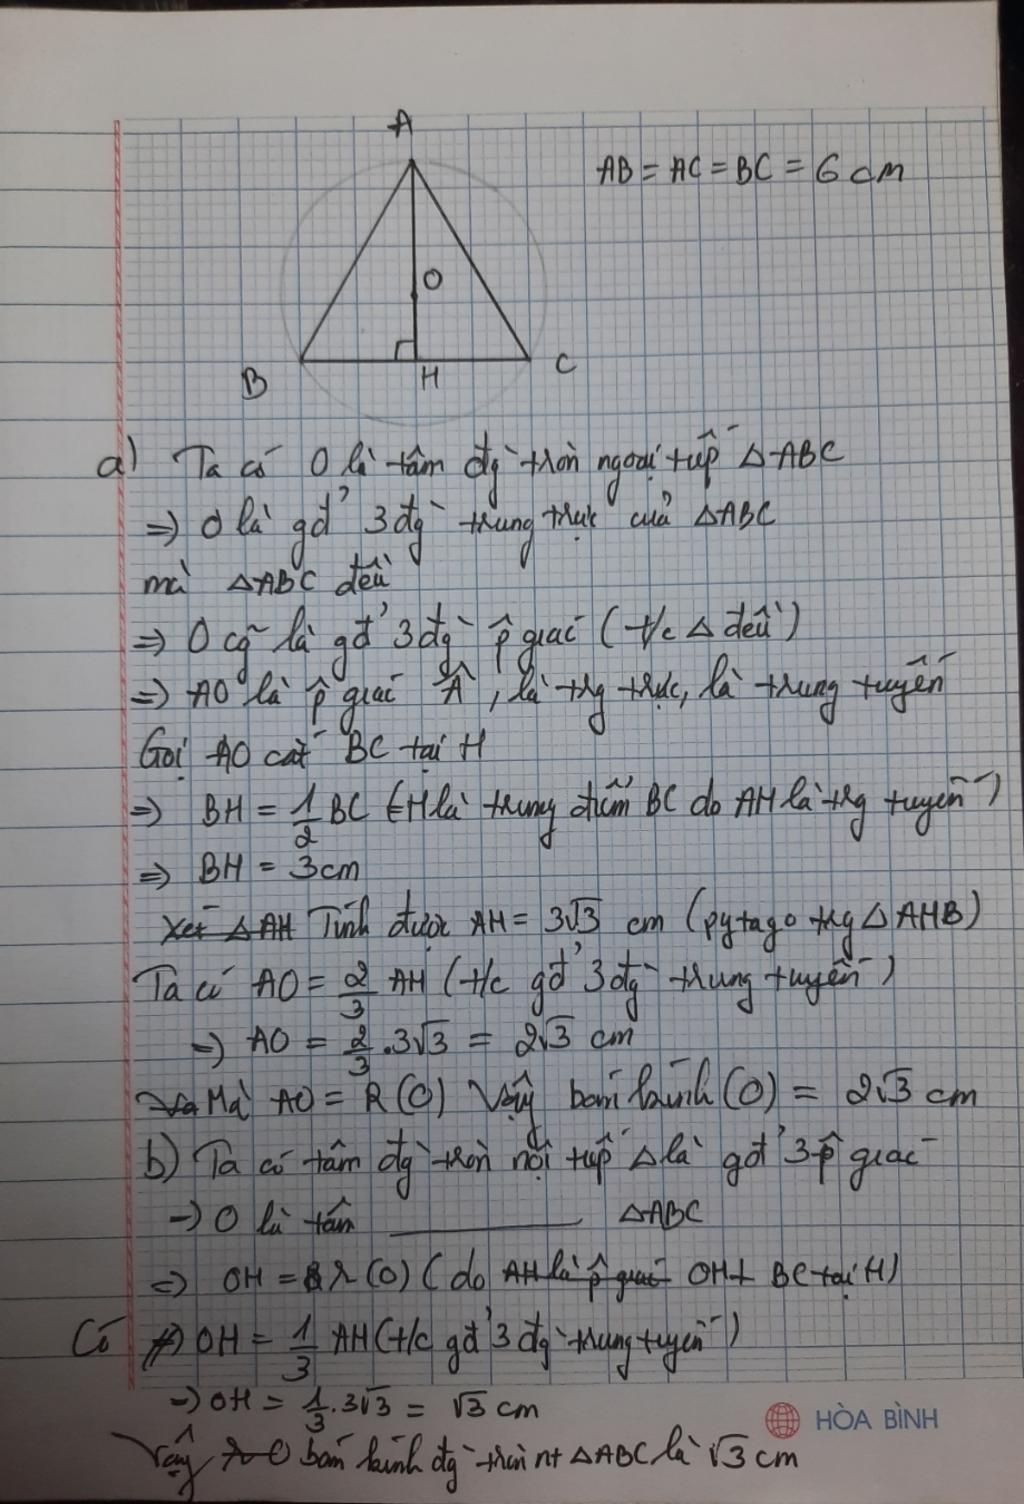 A
AB = AC = BC = 6 cm
O
B
H
C
a) Ta có O là tâm đg` tròn ngoại tiếp △ABC
=> O là gđ' 3 đg` trung trực của △ABC
mà △ABC đều
=> O cg~ là gđ' 3 đg` p̂ giác (t/c △ đều)
=> AO là p̂ giác Â, là trg trực, là trung tuyến
Gọi AO cắt BC tại H
=> BH = 1/2 BC (H là trung điểm BC do AH là trg tuyến)
=> BH = 3cm
Xét △AH Tính được AH = 3√3 cm (pytago trg △AHB)
Ta có AO = 2/3 AH (t/c gđ' 3 đg` trung tuyến)
-> AO = 2/3 . 3√3 = 2√3 cm
Mà AO = R (O) Vậy bán kính (O) = 2√3 cm
b) Ta có tâm đg` tròn nội tiếp △ là gđ' 3 p̂ giác
-> O là tâm ________ △ABC
=> OH = r (O) (do AH là p̂ giác OH ⊥ BC tại H)
Có => OH = 1/3 AH (t/c gđ' 3 đg` trung tuyến)
-> OH = 1/3 . 3√3 = √3 cm
HÒA BÌNH
Vậy bán kính đg` tròn nt △ABC là √3 cm